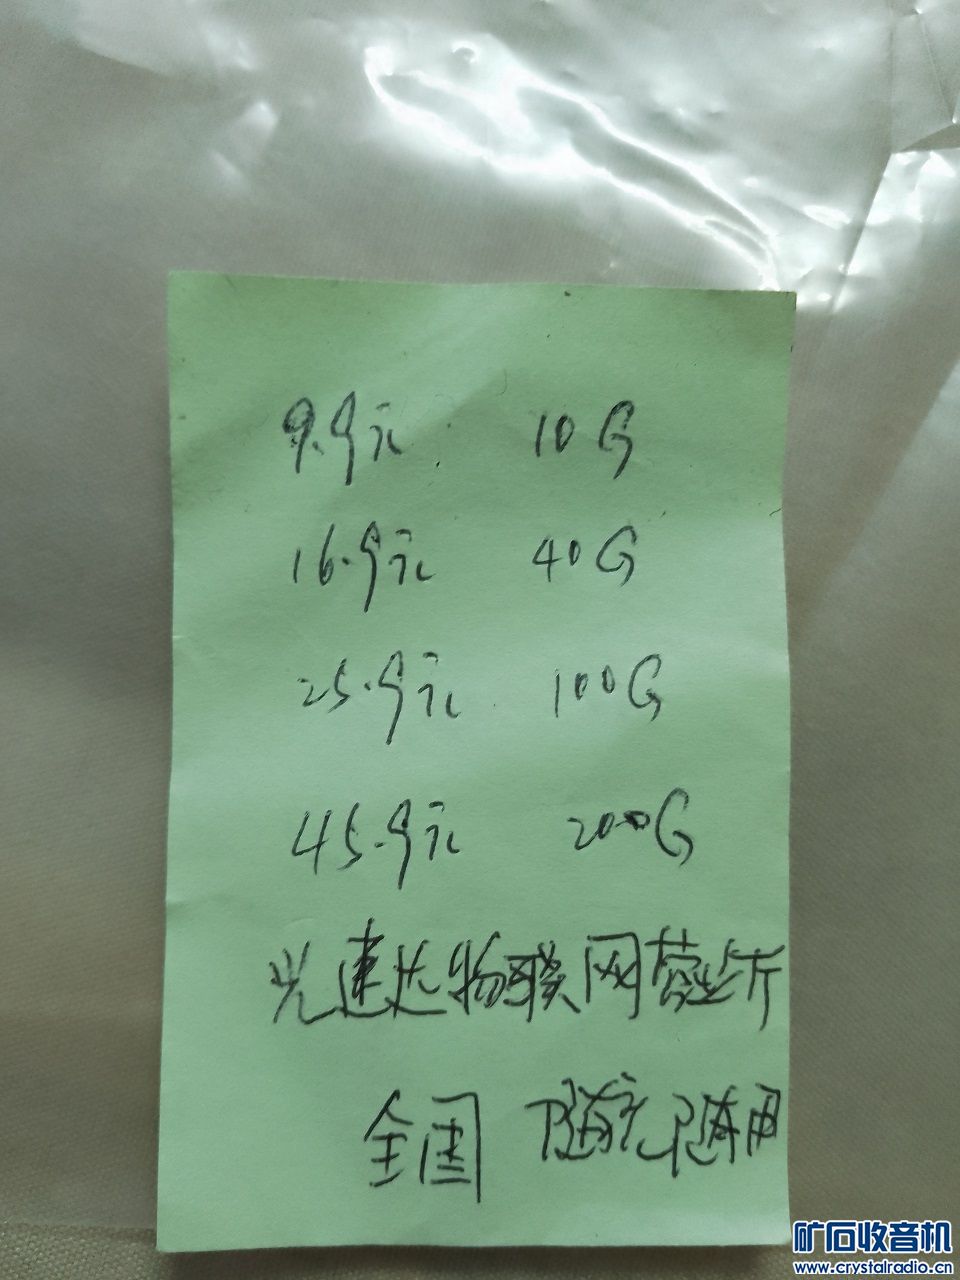 9.9元 10G
16.9元 40G
25.9元 100G
45.9元 200G
光速达物联网营业厅
全国 随充随用
矿石收音机
www.crystalradio.cn